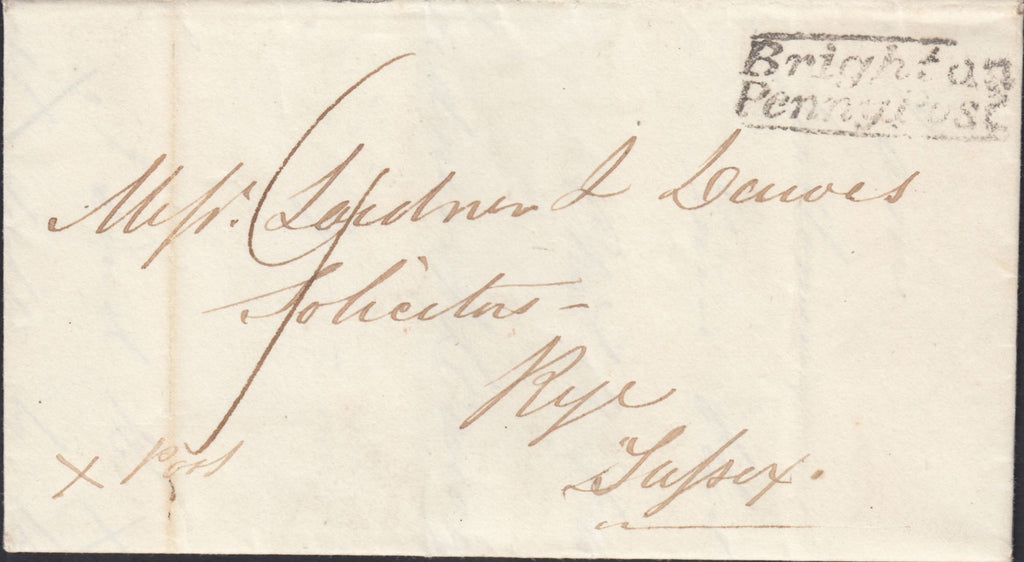 Brighton
Penny Post
9
Messrs. Lardner & Dawes
Solicitors -
Rye
Sussex.
x Post